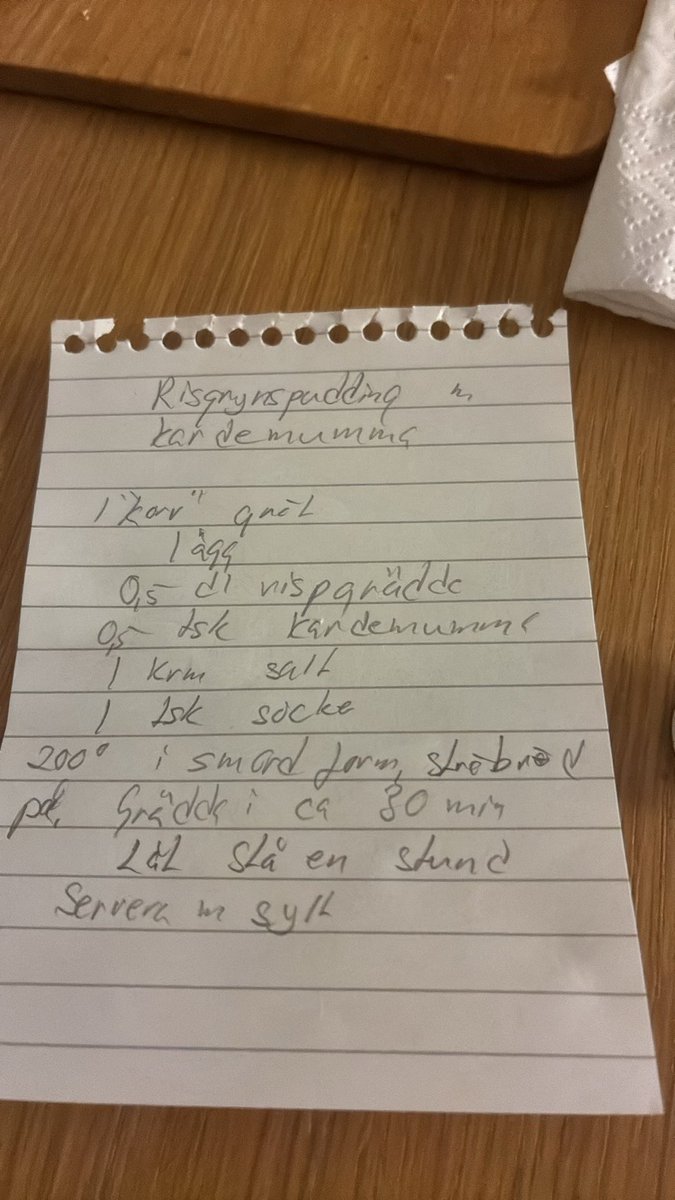 Risgrynspudding m
kardemumma
1 "korv" gröt
1 ägg
0,5 dl vispgrädde
0,5 tsk kardemumma
1 krm salt
1 tsk socke
200° i smord form, ströbröd
på. Grädda i ca 30 min
Låt stå en stund
Servera m sylt